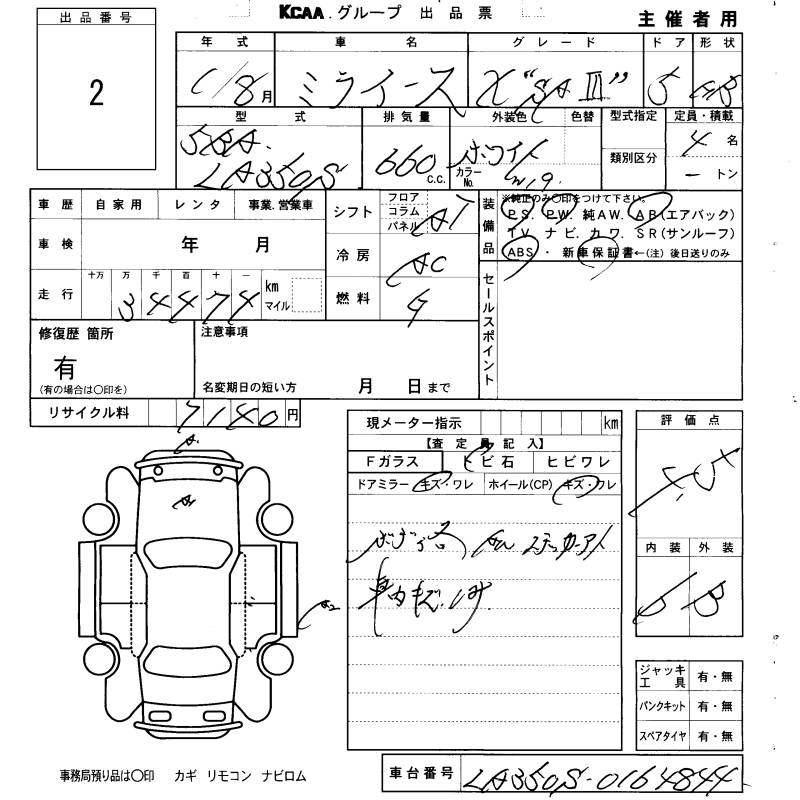 KCAA.グループ 出品票
主催者用
出品番号
2
年式 車名 グレード ドア 形状
1/8月 ミライース X"SAⅢ" 5 HB
型式 排気量 外装色 色替 型式指定 定員・積載
5BA- LA350S 660 C.C. ホワイト カラーNo. W19 類別区分 4名
ートン
車歴 自家用 レンタ 事業.営業車
車検 年 月
走行 十万 万 千 百 十 一 km マイル
34474
シフト フロア コラム パネル AT
冷房 AC
燃料 G
装備品
※純正のみ〇印をつけて下さい。
PS. PW. 純AW. AB(エアバック)
TV. ナビ. カワ. SR(サンルーフ)
ABS ・ 新車保証書←(注) 後日送りのみ
セールスポイント
修復歴 箇所
有
(有の場合は〇印を)
注意事項
名変期日の短い方 月 日まで
リサイクル料 7140円
A1
A1
A2
現メーター指示 km
【査定員記入】
Fガラス トビ石 ヒビワレ
ドアミラー キズ・ワレ ホイール(CP) キズ・ワレ
車内キズ.
評価点
内装 外装
B B
ジャッキ工具 有・無
パンクキット 有・無
スペアタイヤ 有・無
事務局預り品は〇印 カギ リモコン ナビロム
車台番号 LA350S-0164844